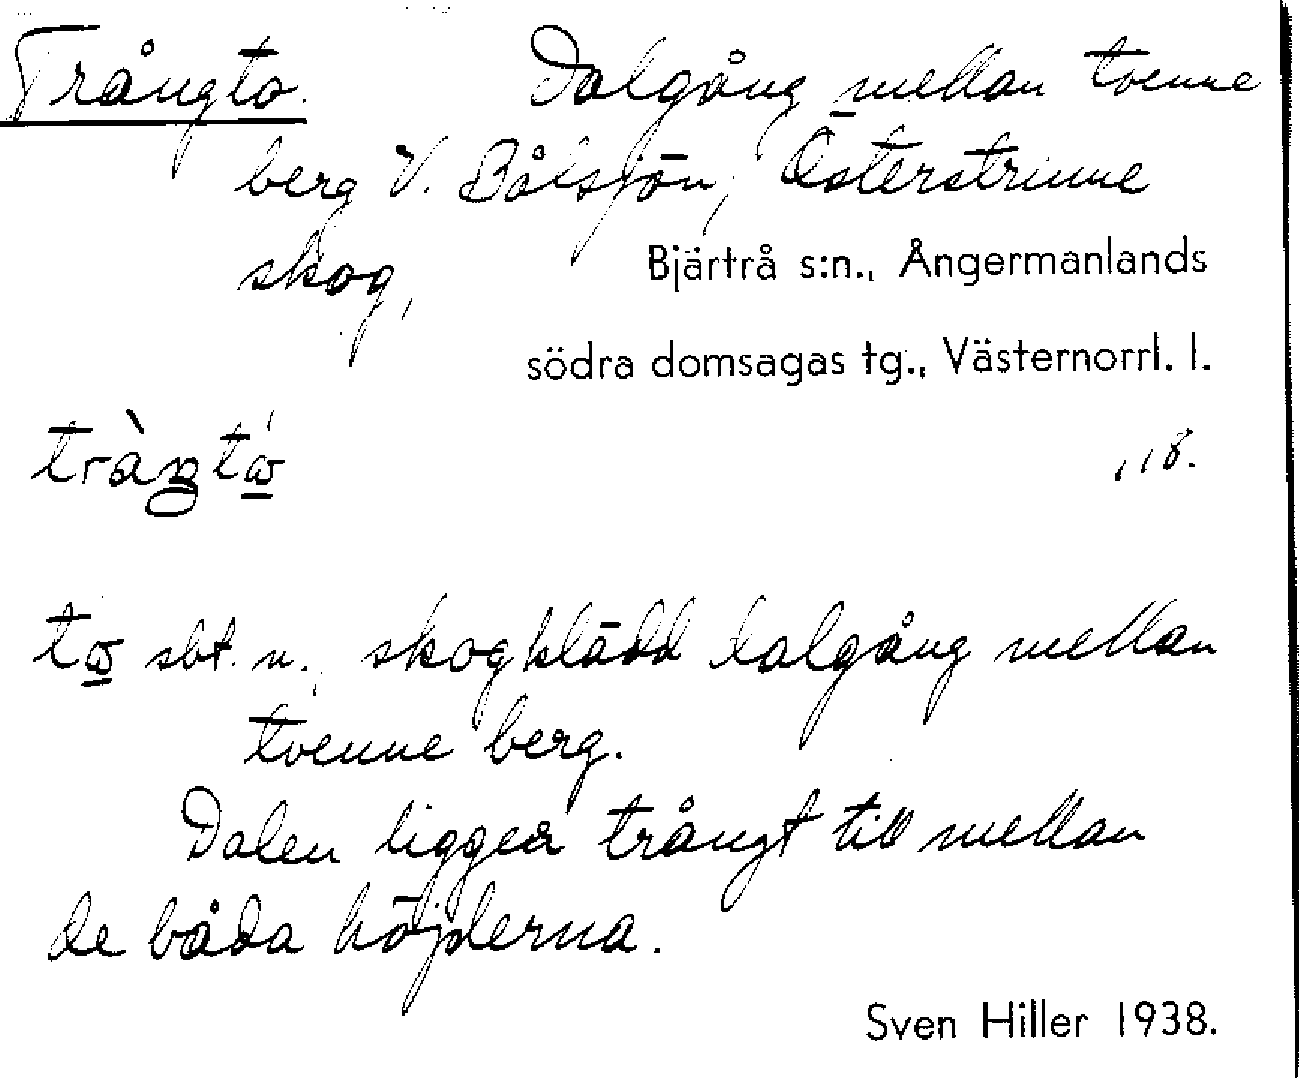 Trångto. Dalgång mellan tvenne
berg V. Bålsjön, Österstrinne
skog,
Bjärtrå s:n., Ångermanlands
södra domsagas tg., Västernorrl. l.
to sbt. n., skogklädd dalgång mellan
tvenne berg.
Dalen ligger trångt till mellan
de båda höjderna.
Sven Hiller 1938.